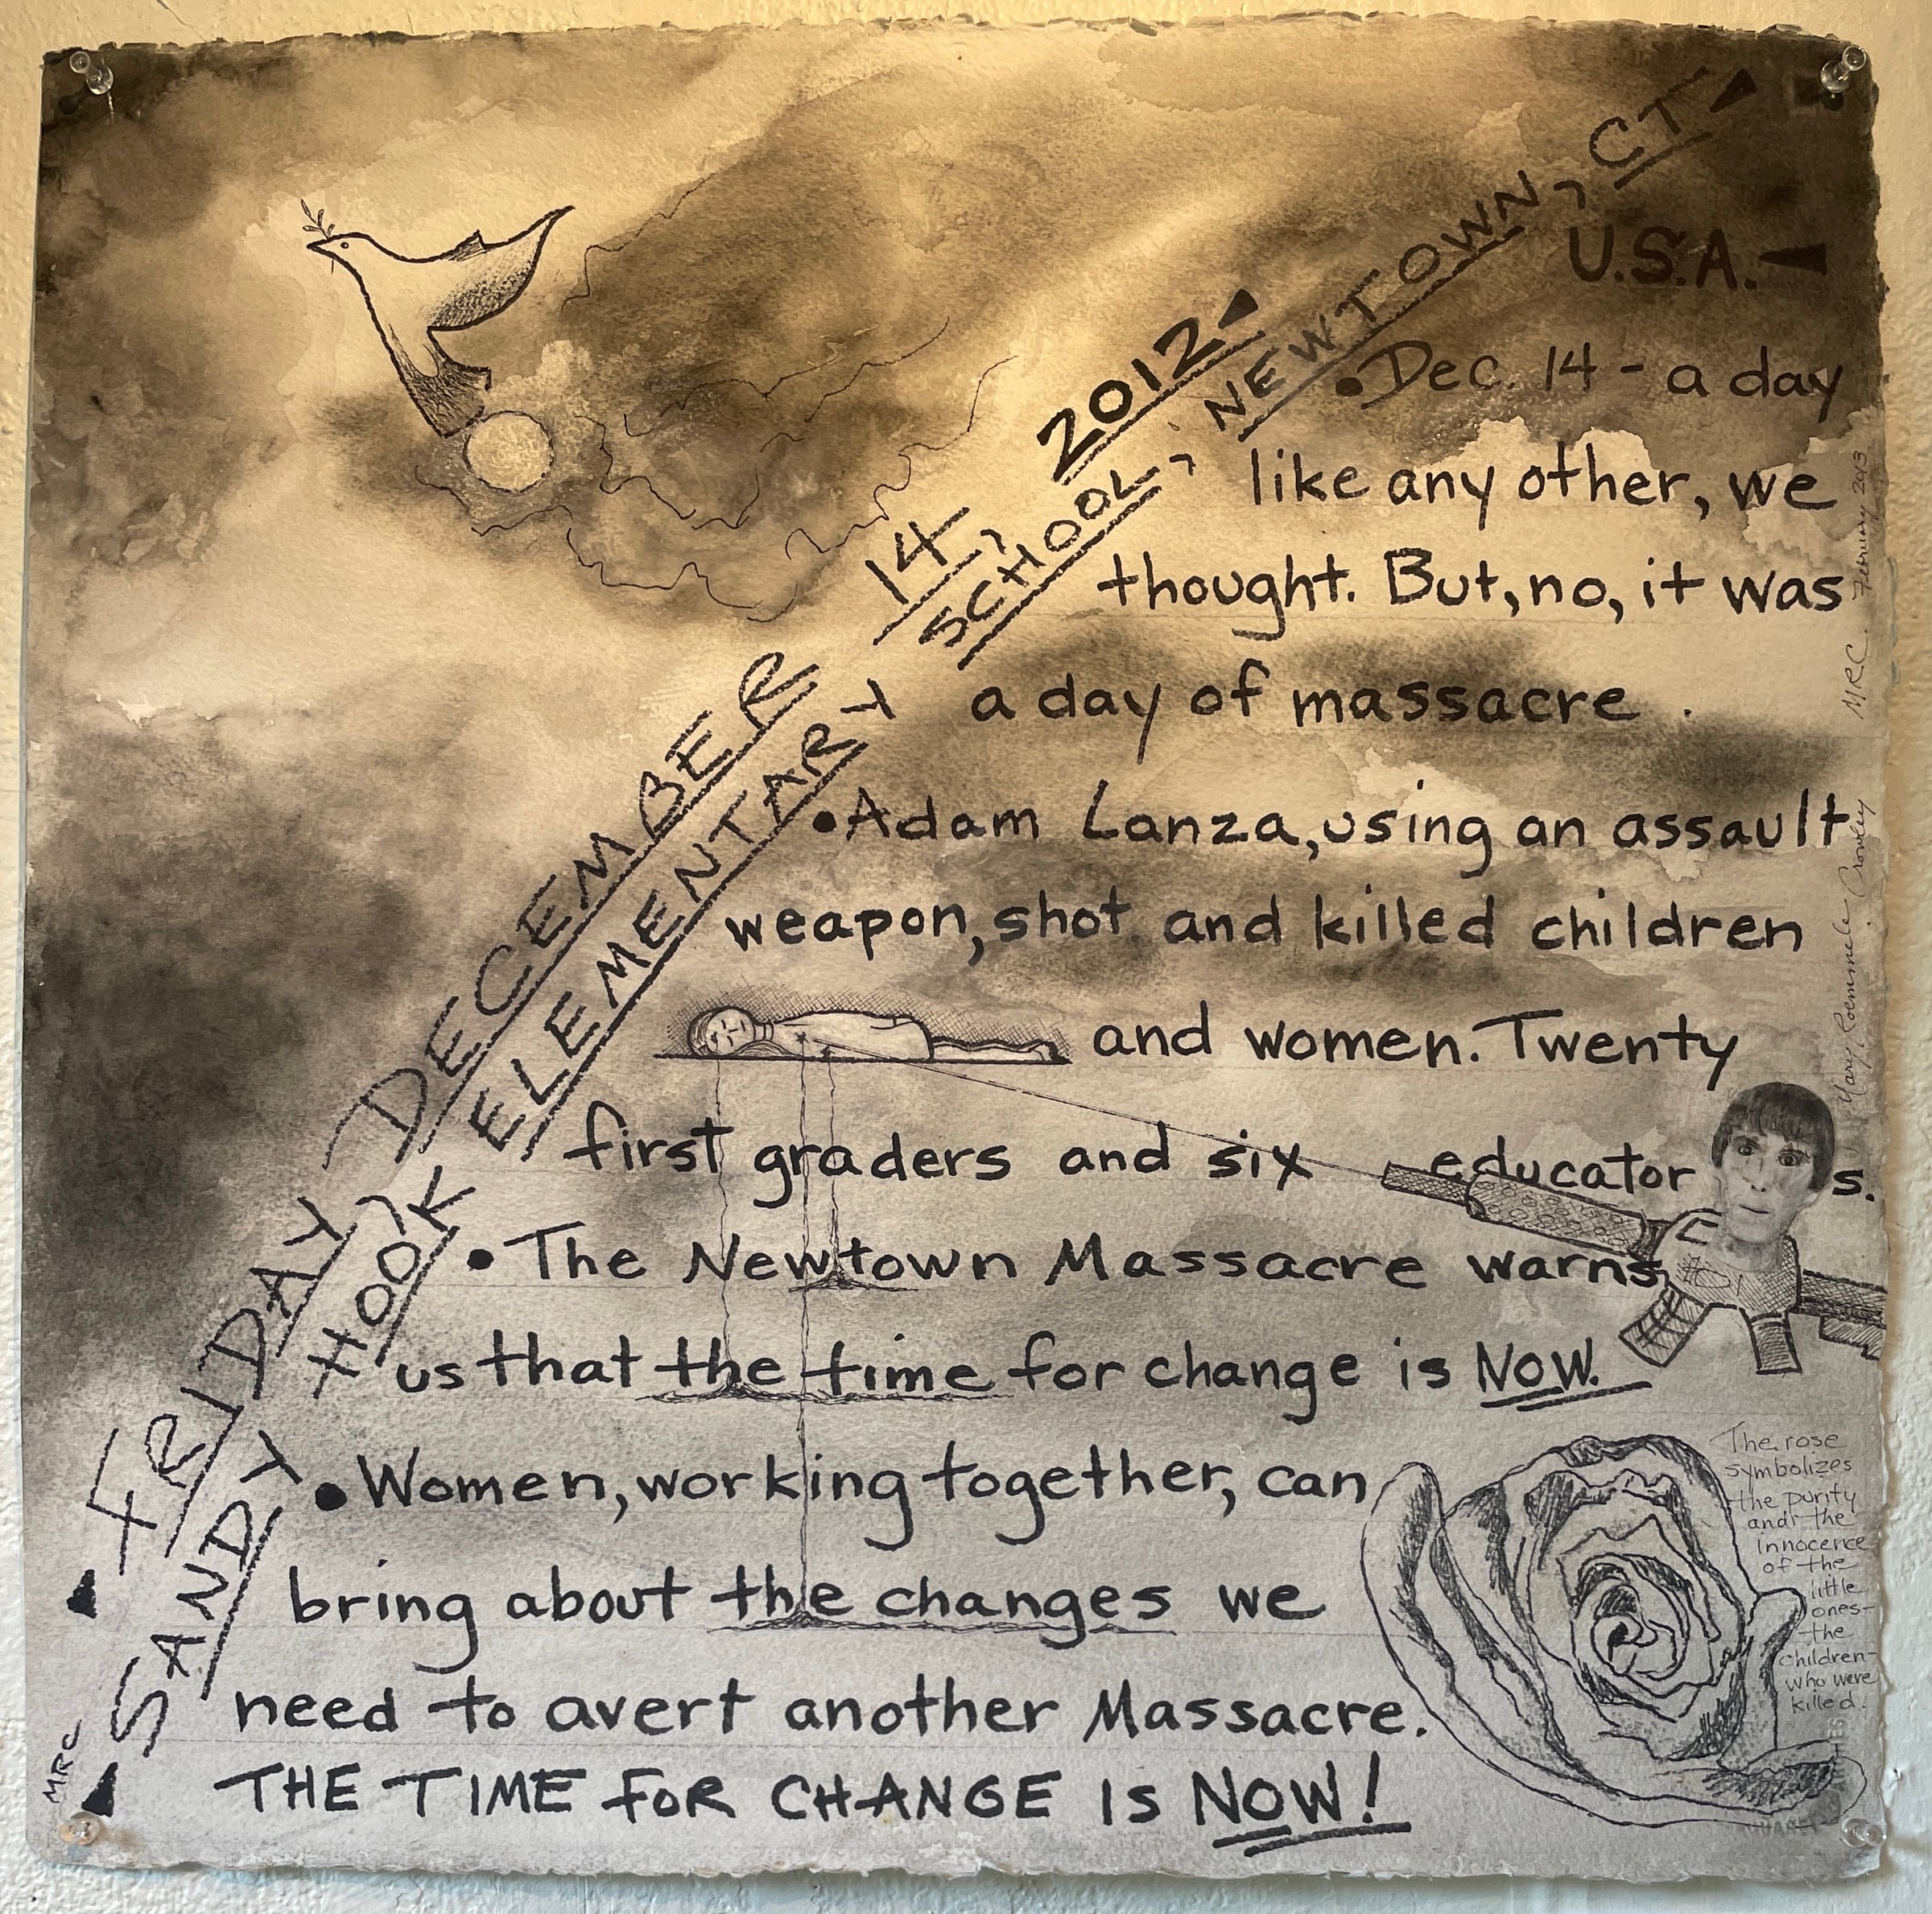 FRIDAY, DECEMBER 14, 2012
SANDY HOOK ELEMENTARY SCHOOL, NEWTOWN, CT
U.S.A.
•Dec. 14 - a day
like any other, we
thought. But, no, it was
a day of massacre.
•Adam Lanza, using an assault
weapon, shot and killed children
and women. Twenty
first graders and six educators.
•The Newtown Massacre warns
us that the time for change is NOW.
•Women, working together, can
bring about the changes we
need to avert another Massacre.
THE TIME FOR CHANGE IS NOW!
The rose
symbolizes
the purity
and the
innocence
of the
little
ones-
the
children-
who were
killed.
Mary Roemmele Crowley MRC. February 2013
MRC